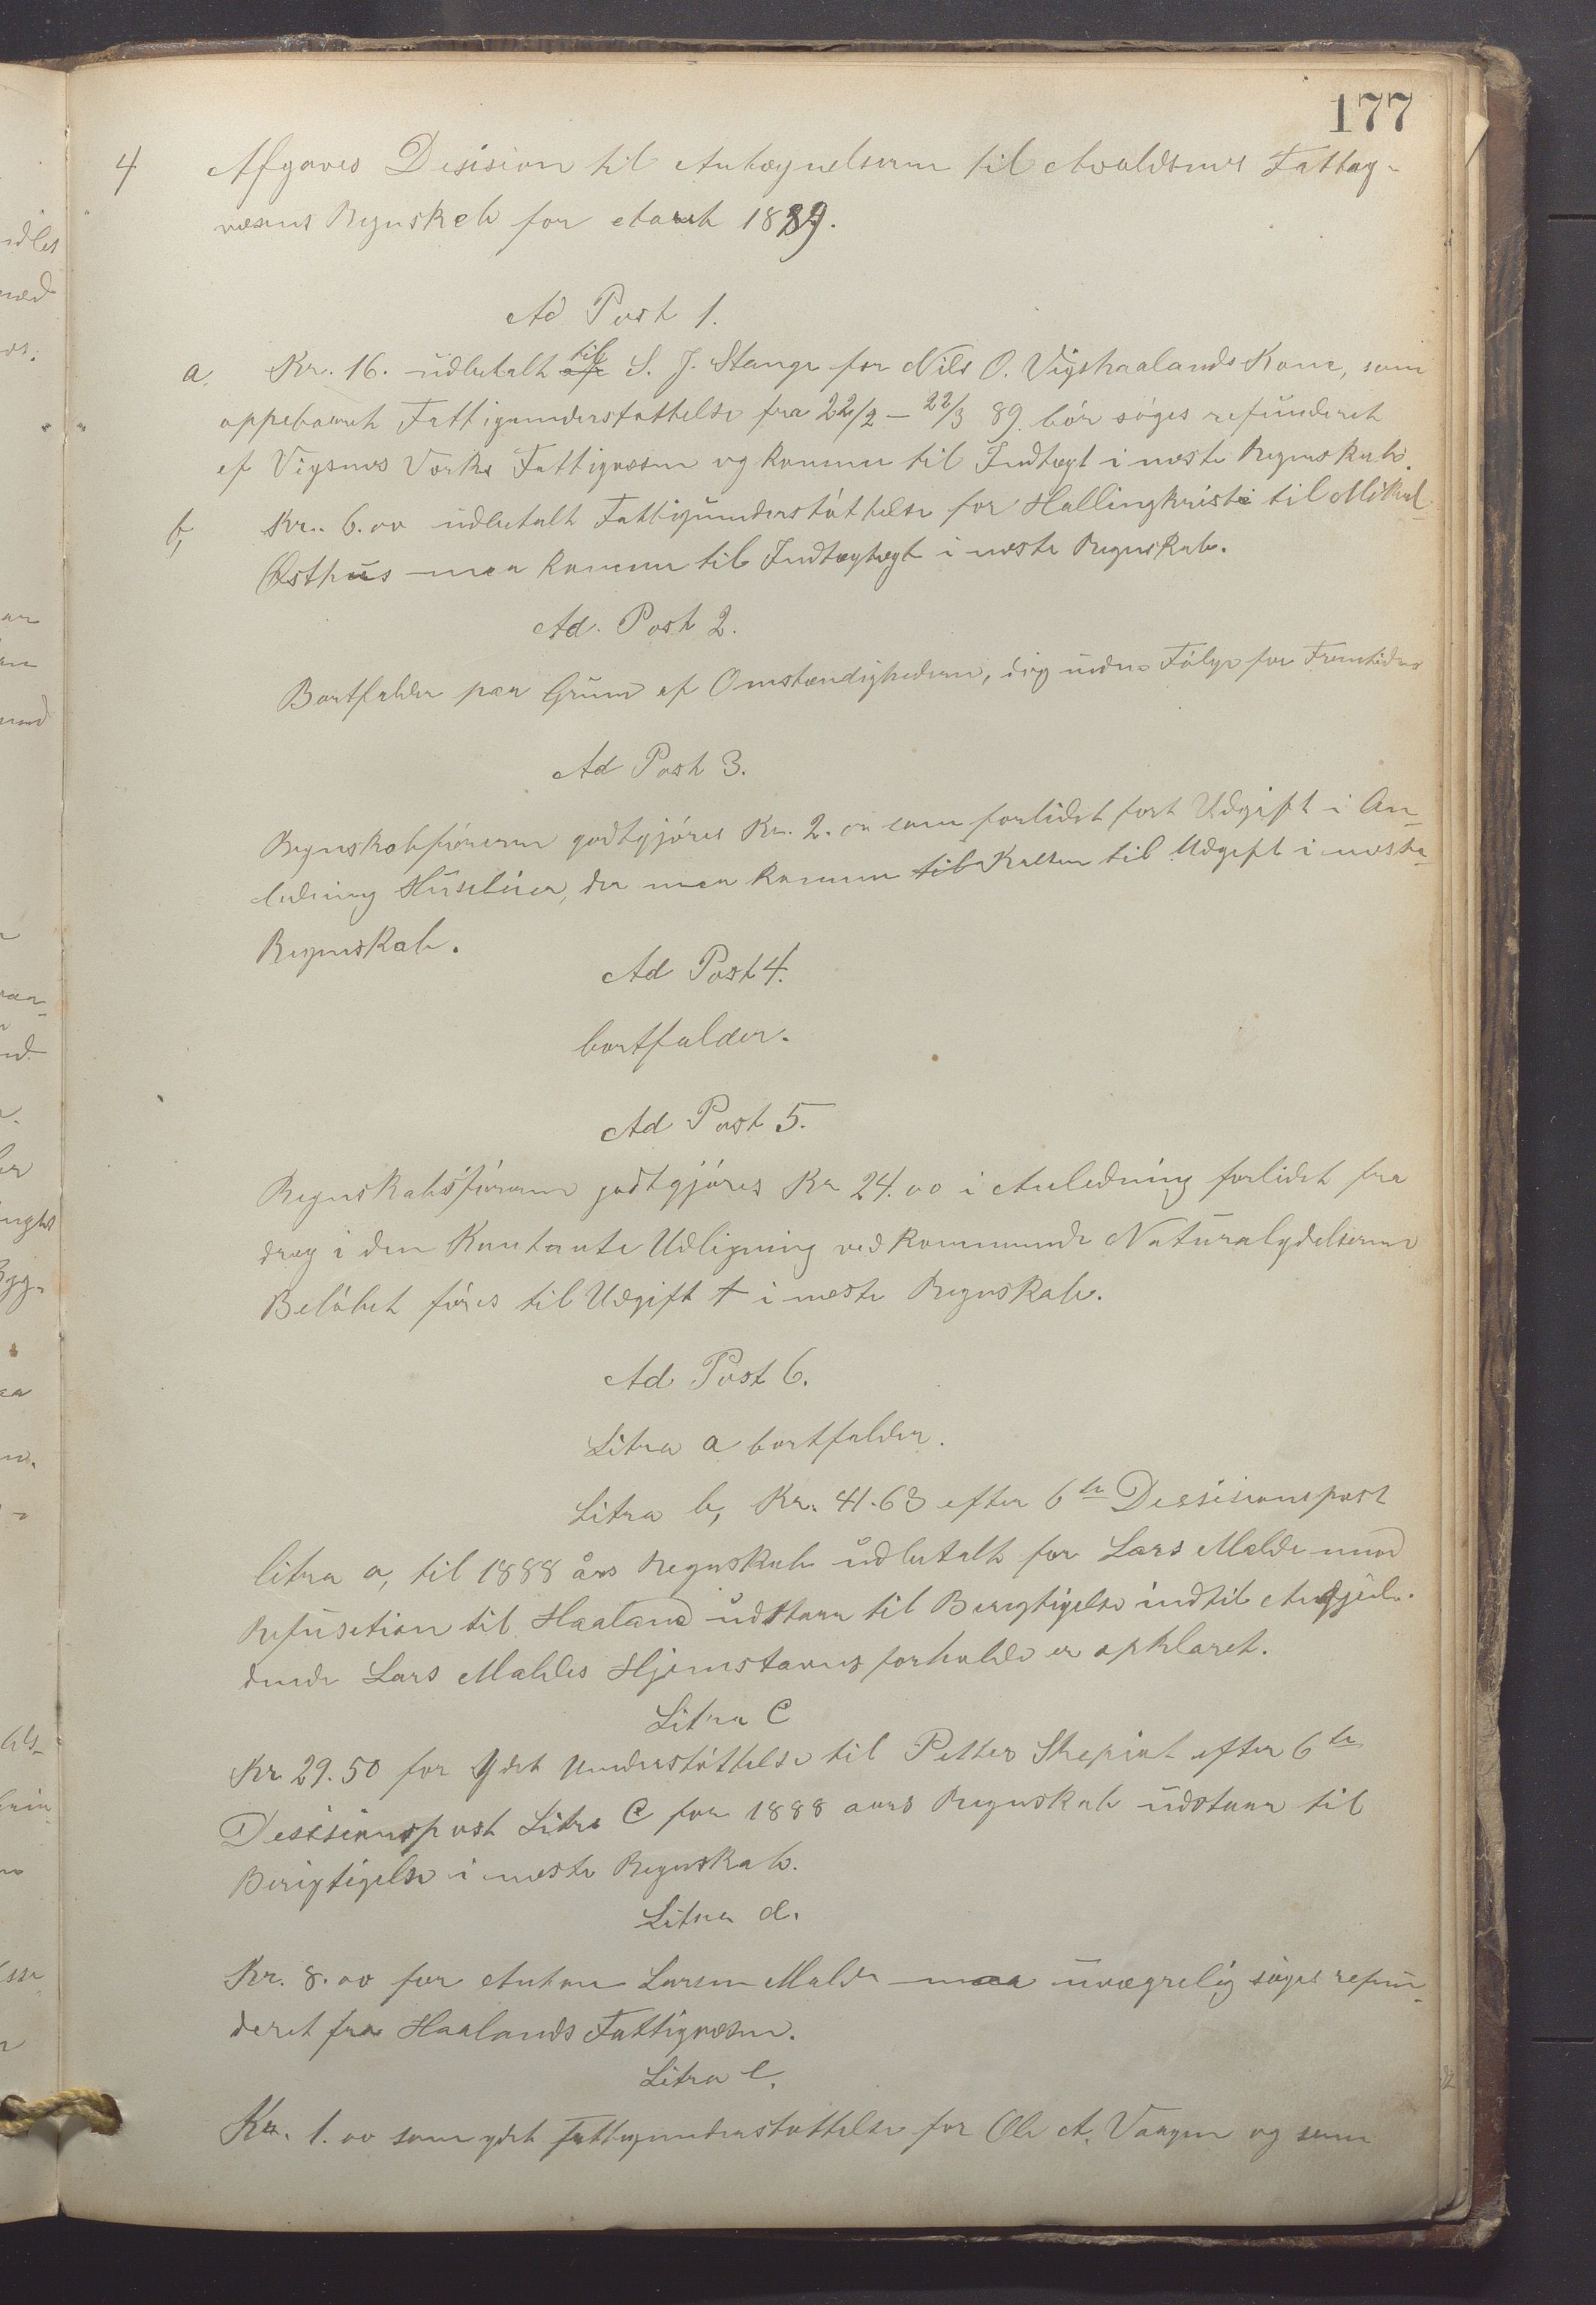 177
4 Afgaves Desision til Antegnelserne til Avaldsnes Fattig-
væsens Regnskab for Aaret 1889.
Ad Post 1.
a, Kr. 16. udbetalt til S. J. Stange for Nils O. Vigshaalands Kone, som
oppebaaret Fattigunderstøttelse fra 22/2 - 22/3 89. bør søges refunderet
af Vigsnes Værks Fattigvæsen og komme til Indtægt i næste Regnskab.
b, Kr. 6.00 udbetalt Fattigunderstøttelse for Hallingkristi til Mikal
Østhus maa komme til Indtægtægt i næste Regnskab.
Ad. Post 2.
Bortfalder paa Grund af Omstændighederne, dog uden Følge for Fremtiden
Ad Post 3.
Regnskabsføreren godtgjøres Kr. 2.00 som forlidet ført Udgift i An-
ledning Husleier, der maa komme til Kassen til Udgift i næste
Regnskab.
Ad Post 4.
bortfalder.
Ad Post 5.
Regnskabsføreren godtgjøres Kr 24.00 i Anledning forlidet fra
drag i den Kontante Udligning vedkommende Naturalydelserne
Beløbet føres til Udgift t i næste Regnskab.
Ad Post 6.
Litra a bortfalder.
Litra b, Kr. 41.63 efter 6te Desisionspost
litra a, til 1888 års Regnskab udbetalt for Lars Malde mod
Refusetion til Haaland udstaar til Berigtigelse indtil Angjæl-
dende Lars Maldes Hjemstavns forholde er opklaret.
Litra C
Kr 29.50 for Ydet Understøttelse til Petter Skepink efter 6te
Desisionspost Litra C for 1888 aars Regnskab udstaar til
Berigtigelse i næste Regnskab.
Litra d.
Kr. 8.00 for Anton Larsen Malde maa uvægrelig søges refun-
deret fra Haalands Fattigvæsen.
Litra e.
Kr. 1.00 som ydet Fattigunderstøttelse for Ole A. Vaagen og som